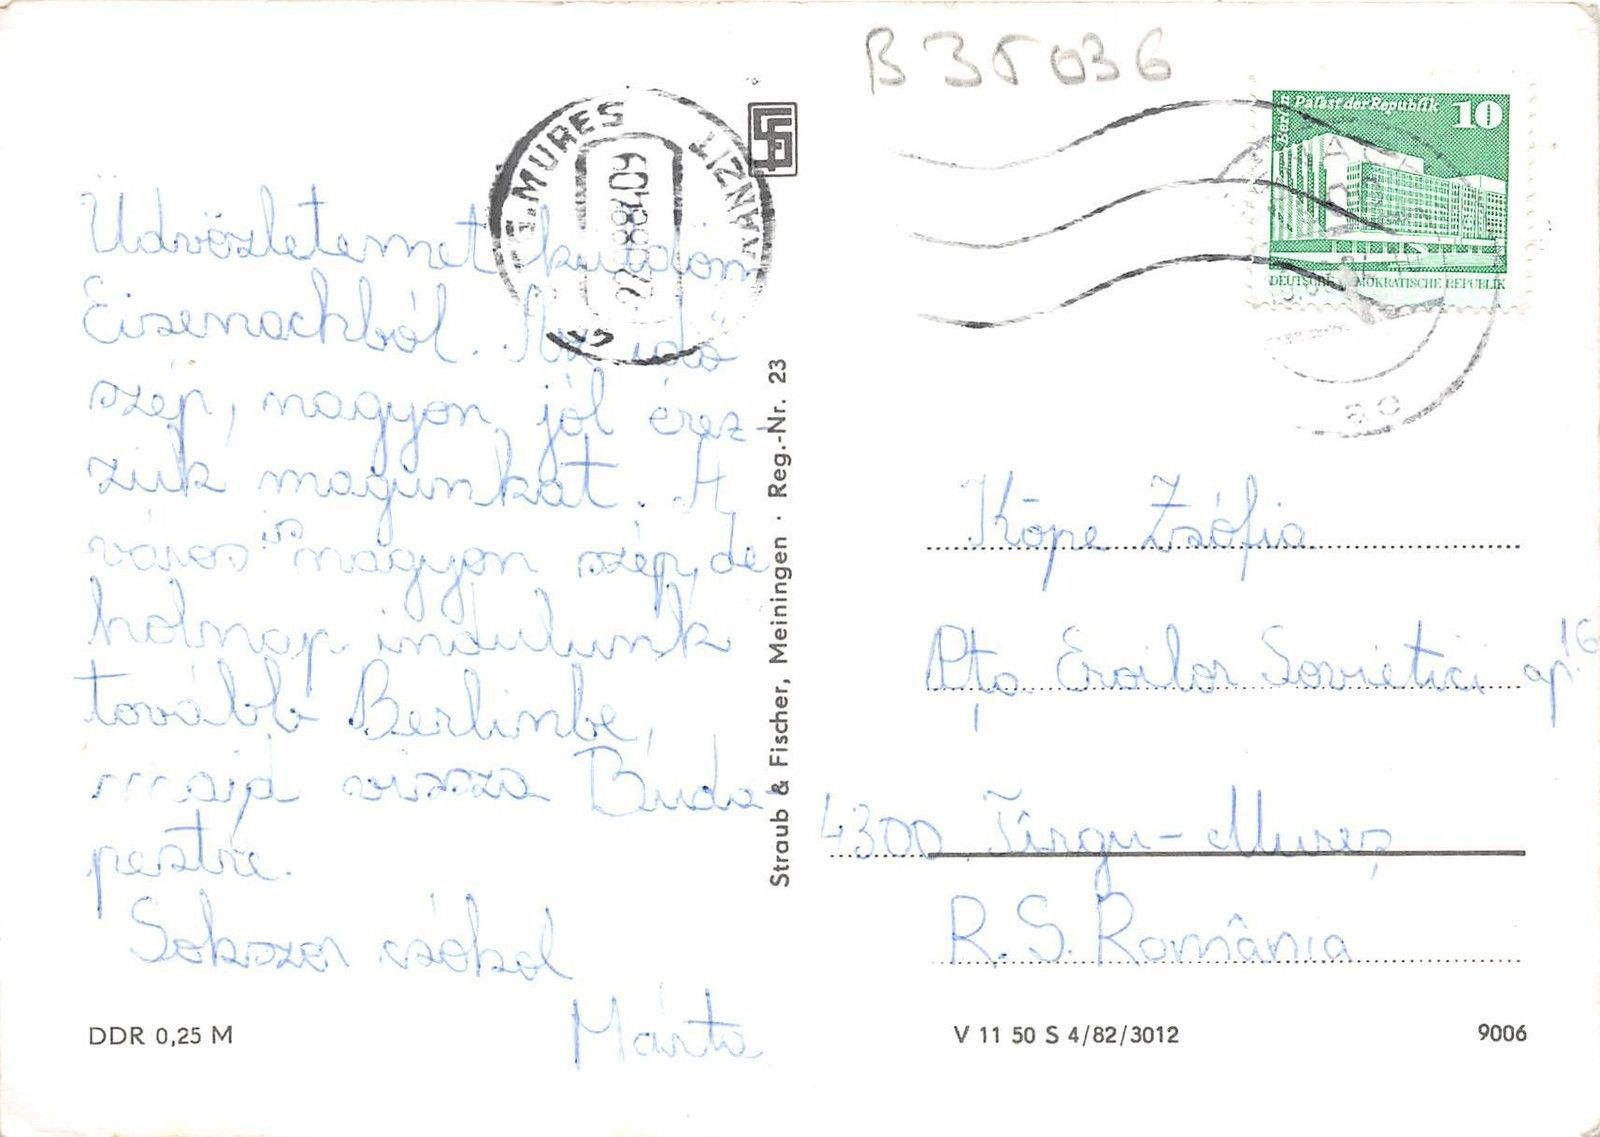 B 35 036
TG.MURES
TRANZIT
Berlin Palast der Republik
10
DEUTSCHE DEMOKRATISCHE REPUBLIK
Üdvözletemet küldöm
Eisenachból. Az idő
szép, nagyon jól érez-
zük magunkat. A
város is nagyon szép, de
holnap indulunk
tovább Berlinbe,
majd vissza Buda-
pestre.
Sokszor csókol
Márta
DDR 0,25 M
Straub & Fischer, Meiningen · Reg.-Nr. 23
Kōpe Zsófia
Pța Eroilor Sovietici ap. 16
4300 Tîrgu-Mureș
R. S. România
V 11 50 S 4/82/3012
9006